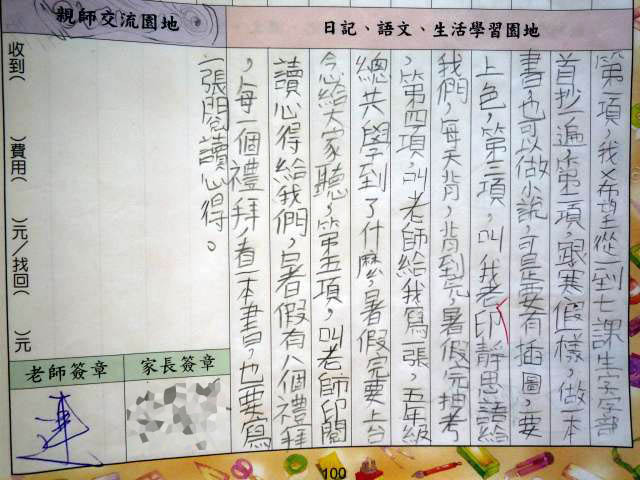 日記、語文、生活學習園地
第一項,我希望從一到七課生字字部
首抄一遍,第二項,跟寒假一樣,做一本
書也可以做小說,可是要有插圖,要
上色,第三項,叫我老印靜思語給
我們,每天背,背到完,暑假完抽考
,第四項,叫老師給我寫一張,五年級
總共學到了什麼,暑假完要上台
念給大家聽,第五項,叫老師印閱
讀心得給我們,暑假有八個禮拜
,每一個禮拜,看一本書,也要寫
一張閱讀心得。
親師交流園地
收到( )費用( )元/找回( )元
家長簽章
老師簽章
連
100